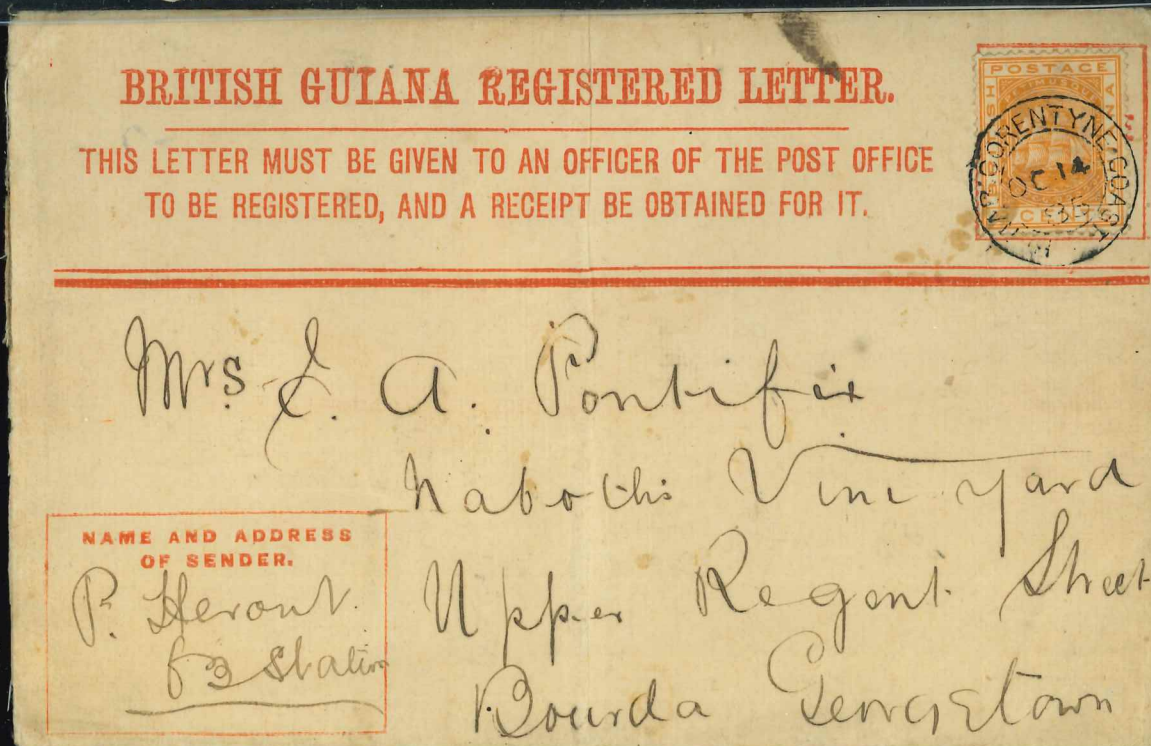 BRITISH GUIANA REGISTERED LETTER.
THIS LETTER MUST BE GIVEN TO AN OFFICER OF THE POST OFFICE
TO BE REGISTERED, AND A RECEIPT BE OBTAINED FOR IT.
POSTAGE
CORENTYNE COAST
OC 14
Mrs. E. A. Pontifix
Naboths Vine yard
Upper Regent Street
Bourda Georgetown
NAME AND ADDRESS
OF SENDER.
P. Heront.
63 Station